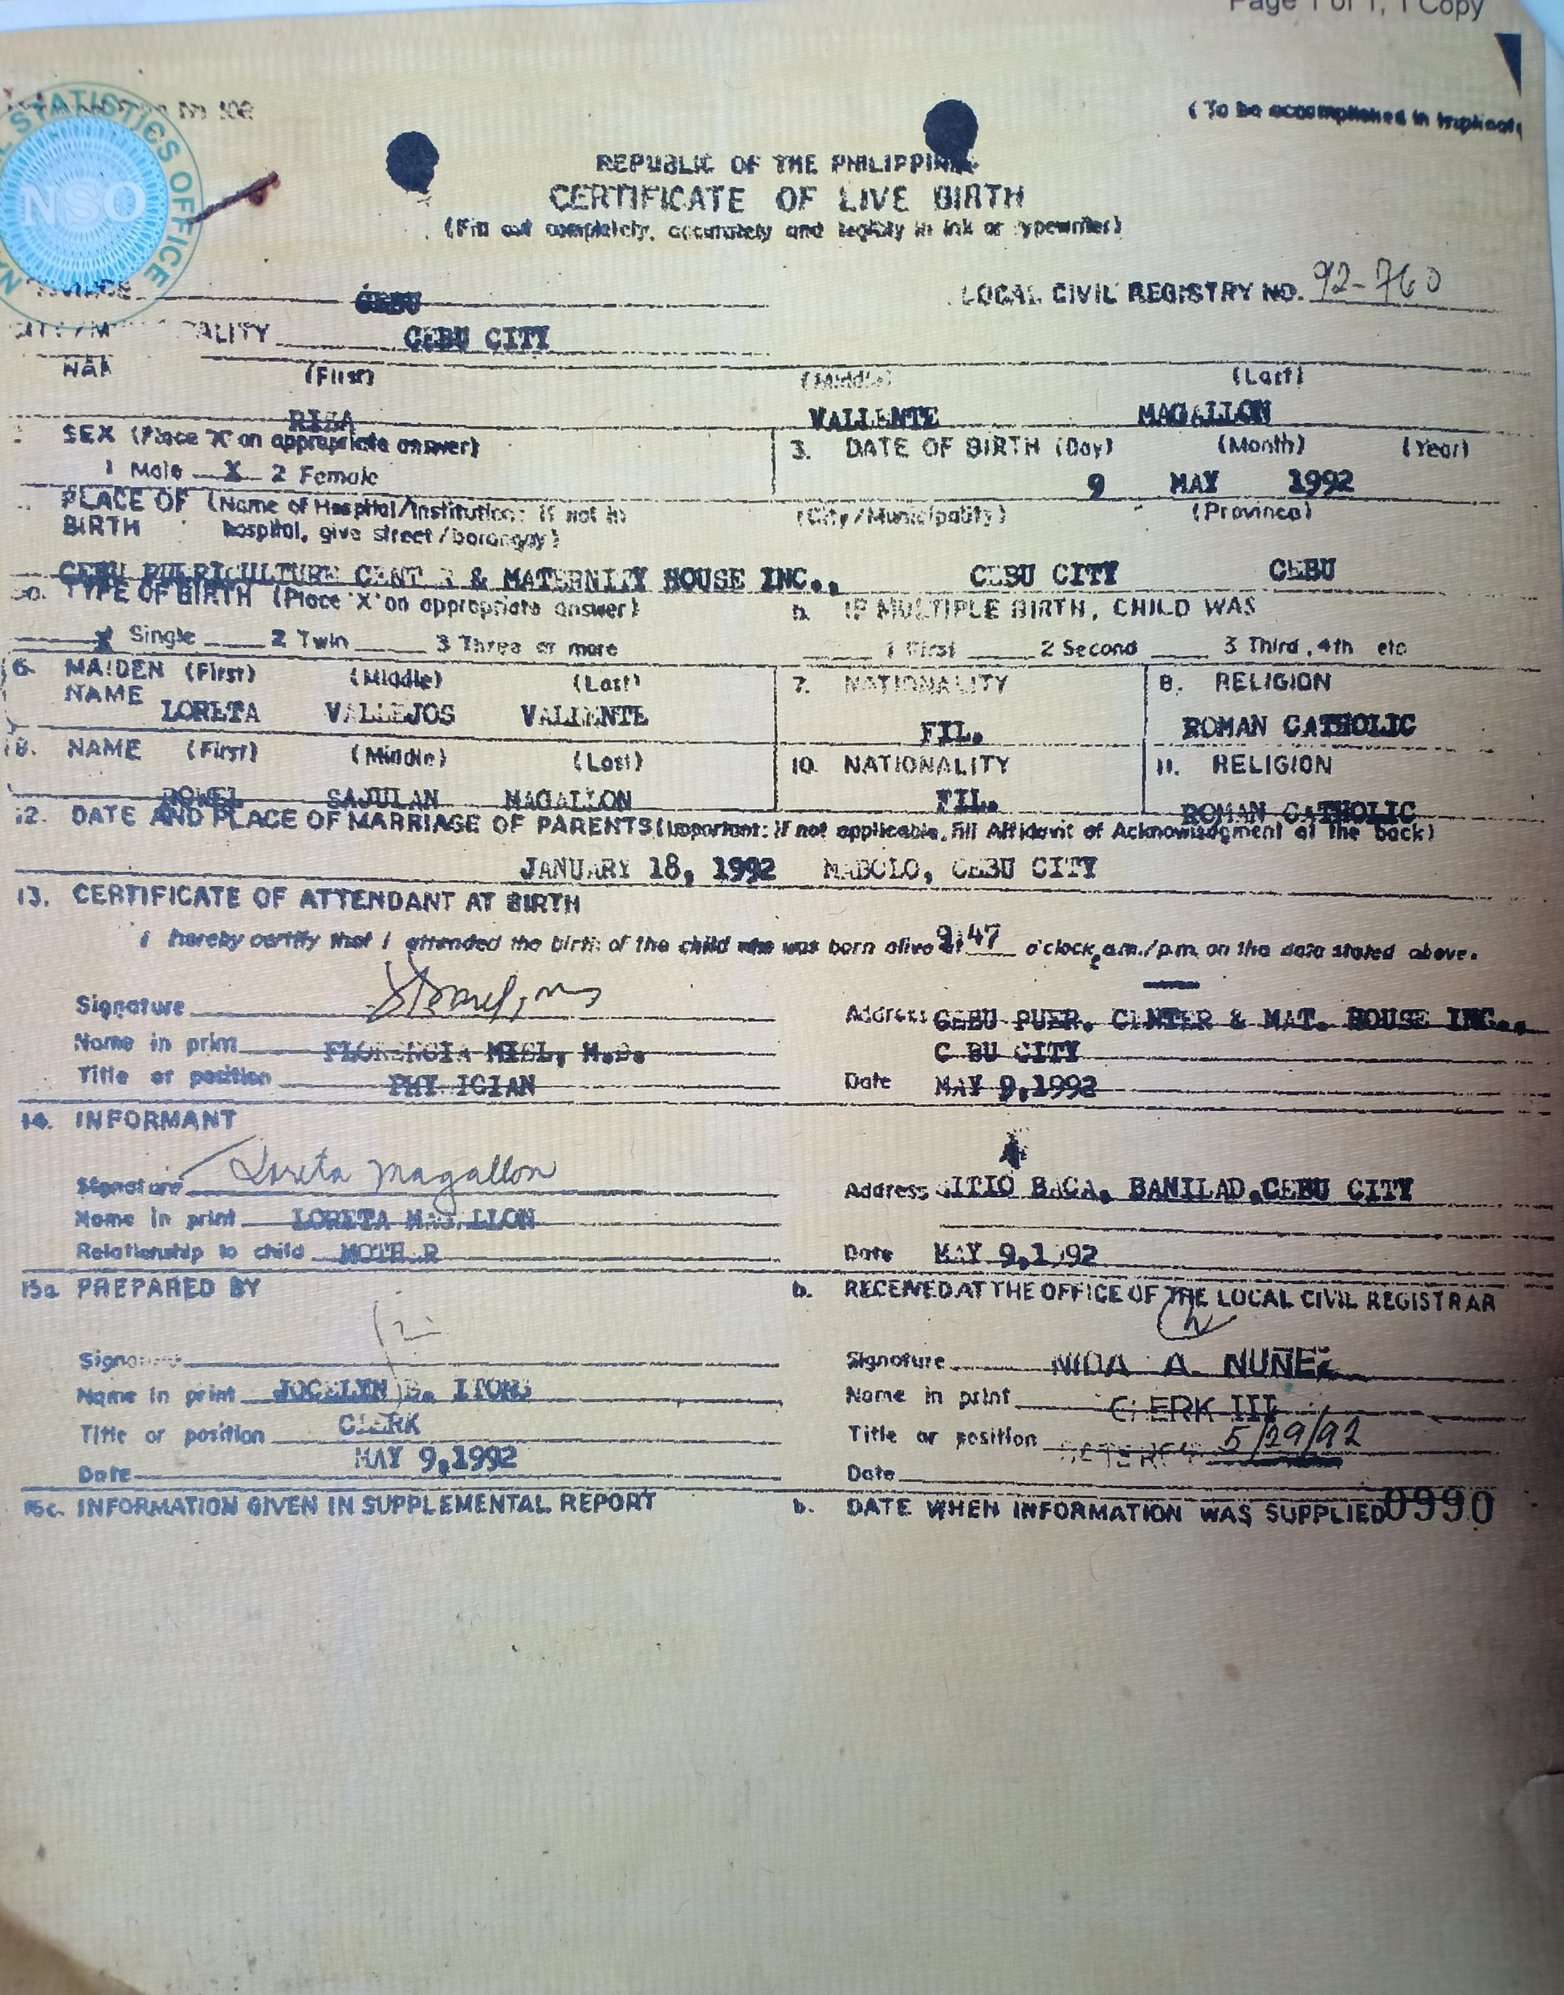 Page 1 of 1, 1 Copy
STATISTICS OFFICE
NSO
(To be accomplished in triplicate
REPUBLIC OF THE PHILIPPINES
CERTIFICATE OF LIVE BIRTH
(Fill out completely, accurately and legibly in ink or typewriter)
CEBU LOCAL CIVIL REGISTRY NO. 92-760
CEBU CITY
(First) (Middle) (Last)
RISA VALLENTE MAGALLON
SEX (Place 'X' on appropriate answer) 3. DATE OF BIRTH (Day) (Month) (Year)
1 Male X 2 Female 9 MAY 1992
PLACE OF (Name of Hospital/Institution; if not in (City/Municipality) (Province)
BIRTH hospital, give street/barangay)
CEBU PUERICULTURE CENTER & MATERNITY HOUSE INC., CEBU CITY CEBU
TYPE OF BIRTH (Place 'X' on appropriate answer) b. IF MULTIPLE BIRTH, CHILD WAS
X Single 2 Twin 3 Three or more 1 First 2 Second 3 Third, 4th etc
6. MAIDEN (First) (Middle) (Last) 7. NATIONALITY 8. RELIGION
NAME LORETA VALLEJOS VALIENTE FIL. ROMAN CATHOLIC
NAME (First) (Middle) (Last) 10. NATIONALITY 11. RELIGION
ROWEL SAJULAN MAGALLON FIL. ROMAN CATHOLIC
12. DATE AND PLACE OF MARRIAGE OF PARENTS (Important: If not applicable, fill Affidavit of Acknowledgment at the back)
JANUARY 18, 1992 MABOLO, CEBU CITY
13. CERTIFICATE OF ATTENDANT AT BIRTH
I hereby certify that I attended the birth of the child who was born alive at 9:47 o'clock a.m./p.m. on the date stated above.
Signature Address CEBU PUER. CENTER & MAT. HOUSE INC.,
Name in print FLORENCIA MIEL, M.D. C BU CITY
Title or position PHY ICIAN Date MAY 9,1992
14. INFORMANT
Signature Loreta Magallon Address SITIO BACA, BANILAD,CEBU CITY
Name in print LORETA MAGALLON
Relationship to child MOTH R Date MAY 9,1992
15a PREPARED BY b. RECEIVED AT THE OFFICE OF THE LOCAL CIVIL REGISTRAR
Signature Signature NIDA A. NUÑEZ
Name in print JOCELYN Name in print CLERK III
Title or position CLERK Title or position 5/29/92
Date MAY 9,1992 Date
15c. INFORMATION GIVEN IN SUPPLEMENTAL REPORT b. DATE WHEN INFORMATION WAS SUPPLIED 0990